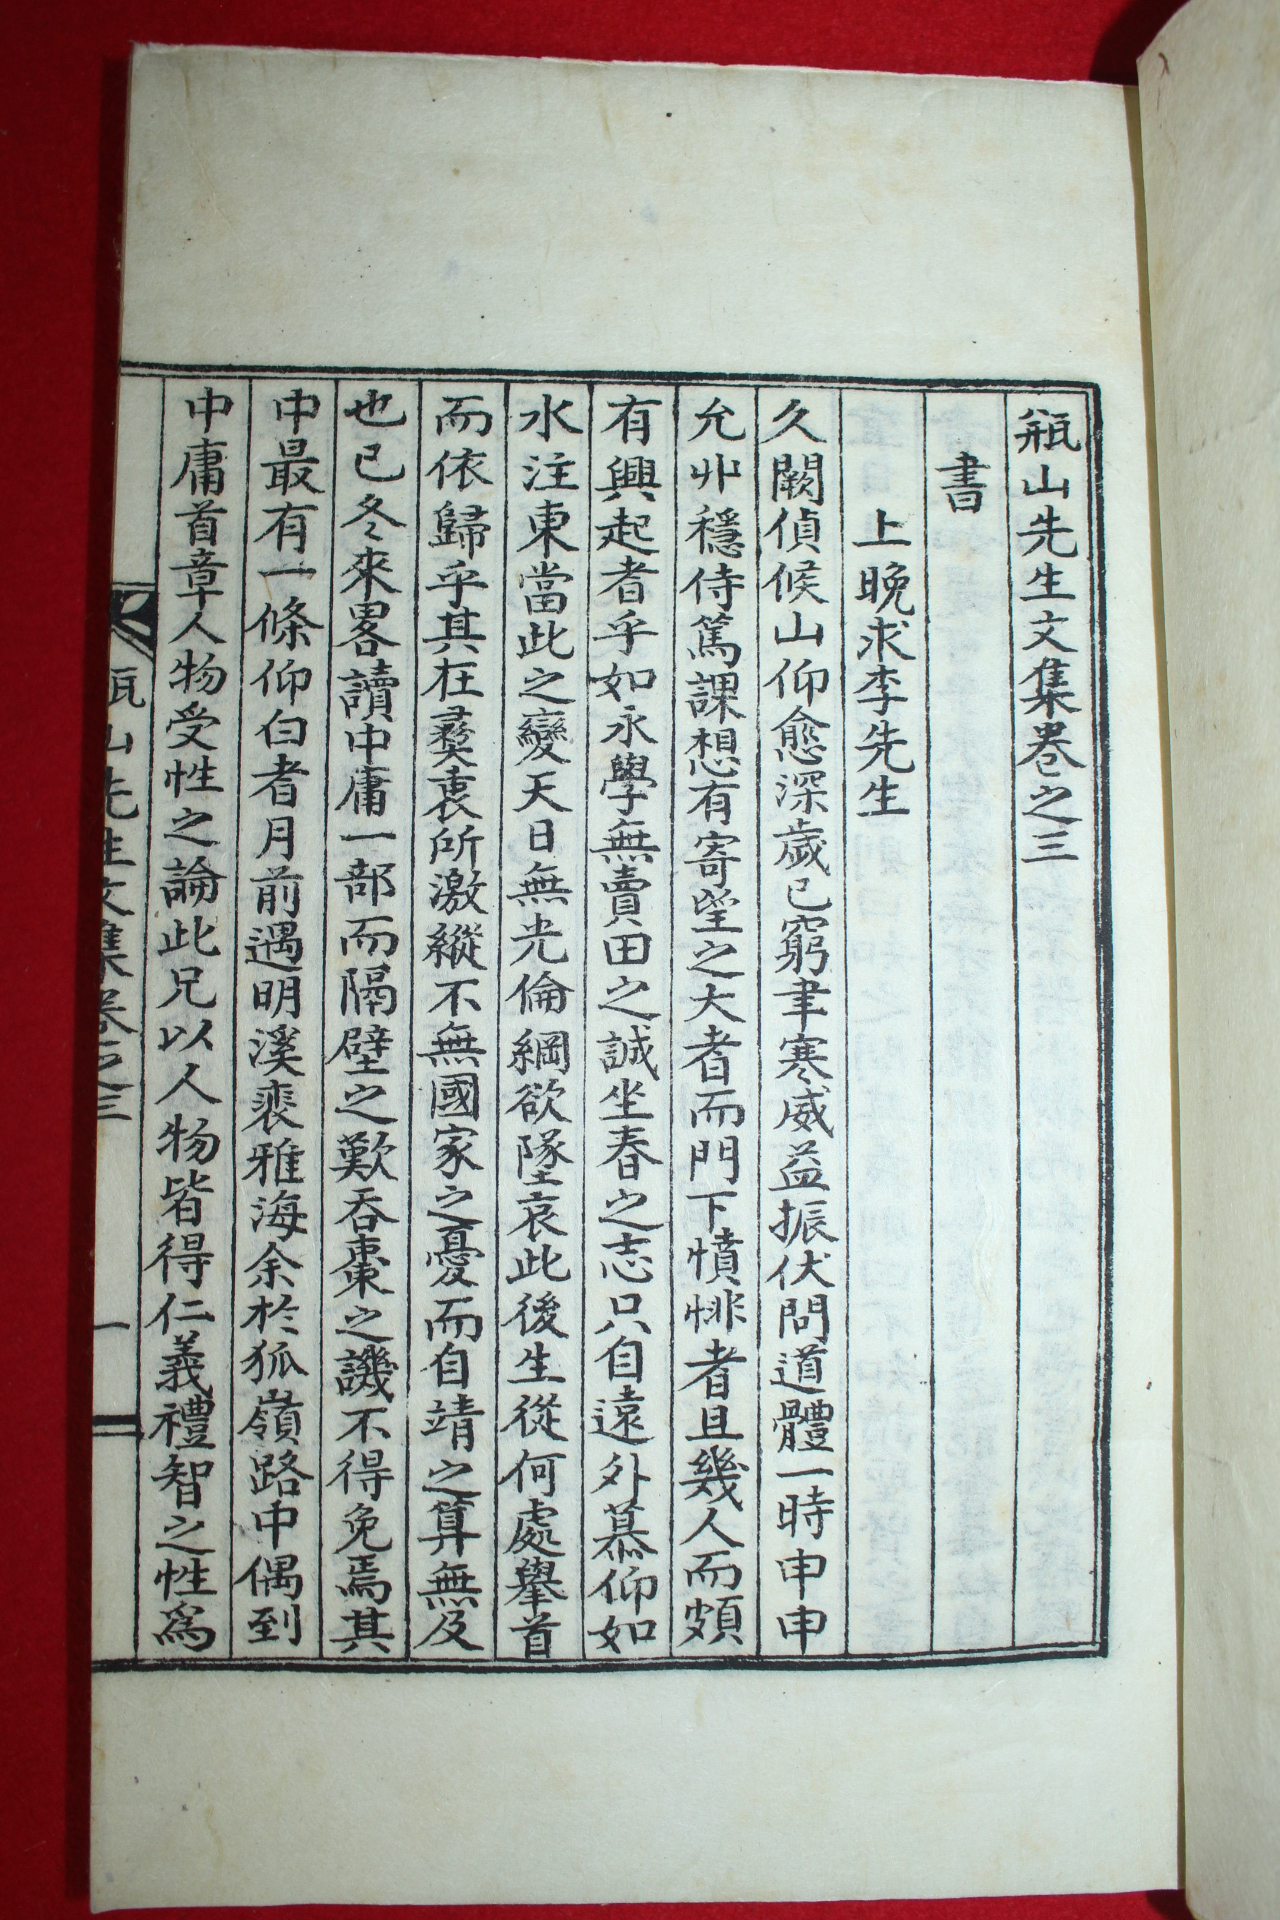 瓶山先生文集卷之三
書
上晩求李先生
久闕偵候山仰愈深歲已窮聿寒威益振伏問道體一時申申
允丱穩侍篤課想有寄望之大者而門下憤悱者且幾人而頗
有興起者乎如永學無賣田之誠坐春之志只自遠外慕仰如
水注東當此之變天日無光倫綱欲墜哀此後生從何處擧首
而依歸乎其在彛衷所激縱不無國家之憂而自靖之算無及
也已冬來畧讀中庸一部而隔壁之歎吞棗之譏不得免焉其
中最有一條仰白者月前遇明溪裵雅海余於狐嶺路中偶到
中庸首章人物受性之論此兄以人物皆得仁義禮智之性爲
瓶山先生文集卷之三
一